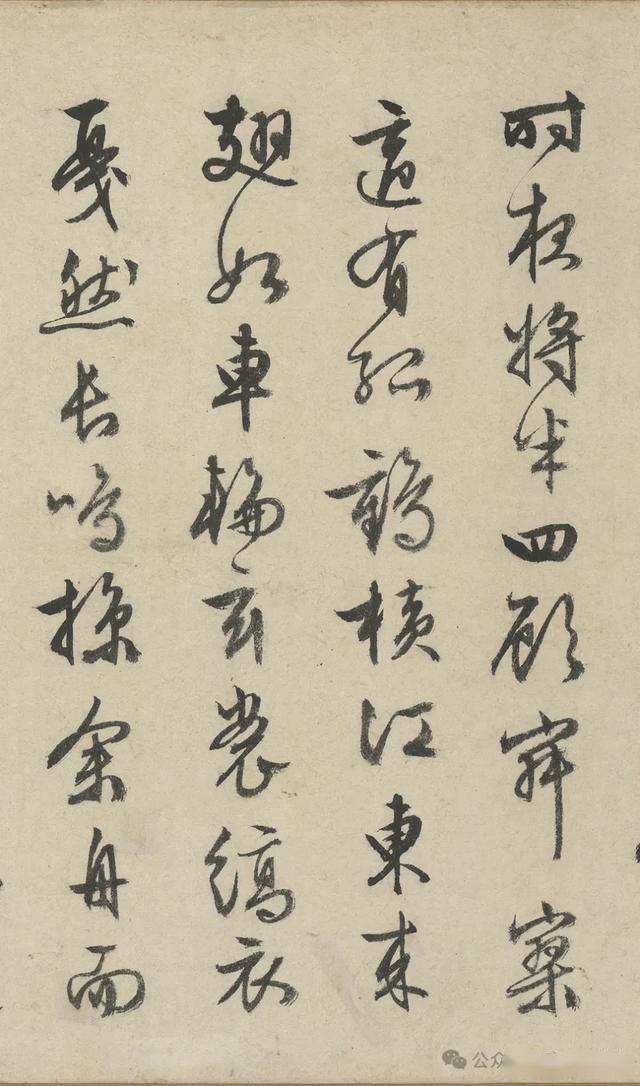 時夜將半四顧寂寥
適有孤鶴橫江東來
翅如車輪玄裳縞衣
戛然長鳴掠余舟而
公众